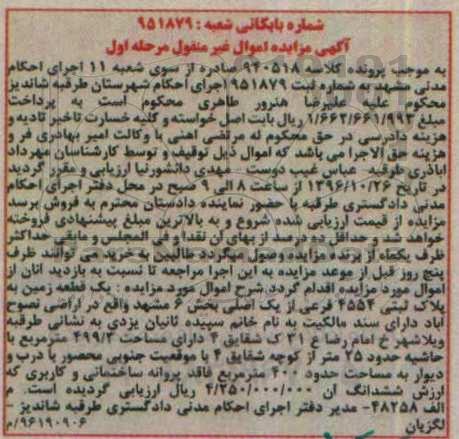 شماره بایگانی شعبه : ۹۵۱۸۷۹
آگهی مزایده اموال غیر منقول مرحله اول
به موجب پرونده کلاسه ۹۴۰۵۱۸ صادره از سوی شعبه ۱۱ اجرای احکام
مدنی مشهد به شماره ثبت ۹۵۱۸۷۹ اجرای احکام شهرستان طرقبه شاندیز
محکوم علیه علیرضا هنرور طاهری محکوم است به پرداخت
مبلغ ۱/۶۶۳/۶۶۱/۹۹۳ ریال بابت اصل خواسته و کلیه خسارت تاخیر تادیه و
هزینه دادرسی در حق محکوم له مرتضی اهنی با وکالت امیر بهادری فر و
هزینه حق الاجرا می باشد که اموال ذیل توقیف و توسط کارشناسان مهرداد
اباذری طرقبه _ عباس غیب دوست _ مهدی دانشورنیا ارزیابی و مقرر گردید
در تاریخ ۱۳۹۶/۱۰/۲۶ از ساعت ۸ الی ۹ صبح در محل دفتر اجرای احکام
مدنی دادگستری طرقبه با حضور نماینده دادستان محترم به فروش برسد
مزایده از قیمت ارزیابی شده شروع و به بالاترین مبلغ پیشنهادی فروخته
خواهد شد و حداقل ده درصد از بهای آن نقدا و فی المجلس و مابقی حداکثر
ظرف یکماه از برنده مزایده وصول میگردد طالبین به خرید می توانند ظرف
پنج روز قبل از موعد مزایده به این اجرا مراجعه تا نسبت به بازدید انان از
اموال مورد مزایده اقدام گردد.شرح اموال مورد مزایده : یک قطعه زمین به
پلاک ثبتی ۴۵۵۴ فرعی از یک اصلی بخش ۶ مشهد واقع در اراضی نصوح
اباد دارای سند مالکیت به نام خانم سپیده ثانیان یزدی به نشانی طرقبه
ویلاشهر خ امام رضا ع ۳۱ ک شقایق ۴ دارای مساحت ۴۹۹/۳ مترمربع با
حاشیه حدود ۲۵ متر از کوچه شقایق ۴ با موقعیت جنوبی محصور با درب و
دیوار به مساحت حدود ۴۰۰ مترمربع فاقد پروانه ساختمانی و کاربری که
ارزش ششدانگ ان ۴/۲۵۰/۰۰۰/۰۰۰ ریال ارزیابی گردیده است. م
الف ۴۸۲۵۸- مدیر دفتر اجرای احکام مدنی دادگستری طرقبه شاندیز _
لگزیان
۹۶۱۹۰۹۰۶/م